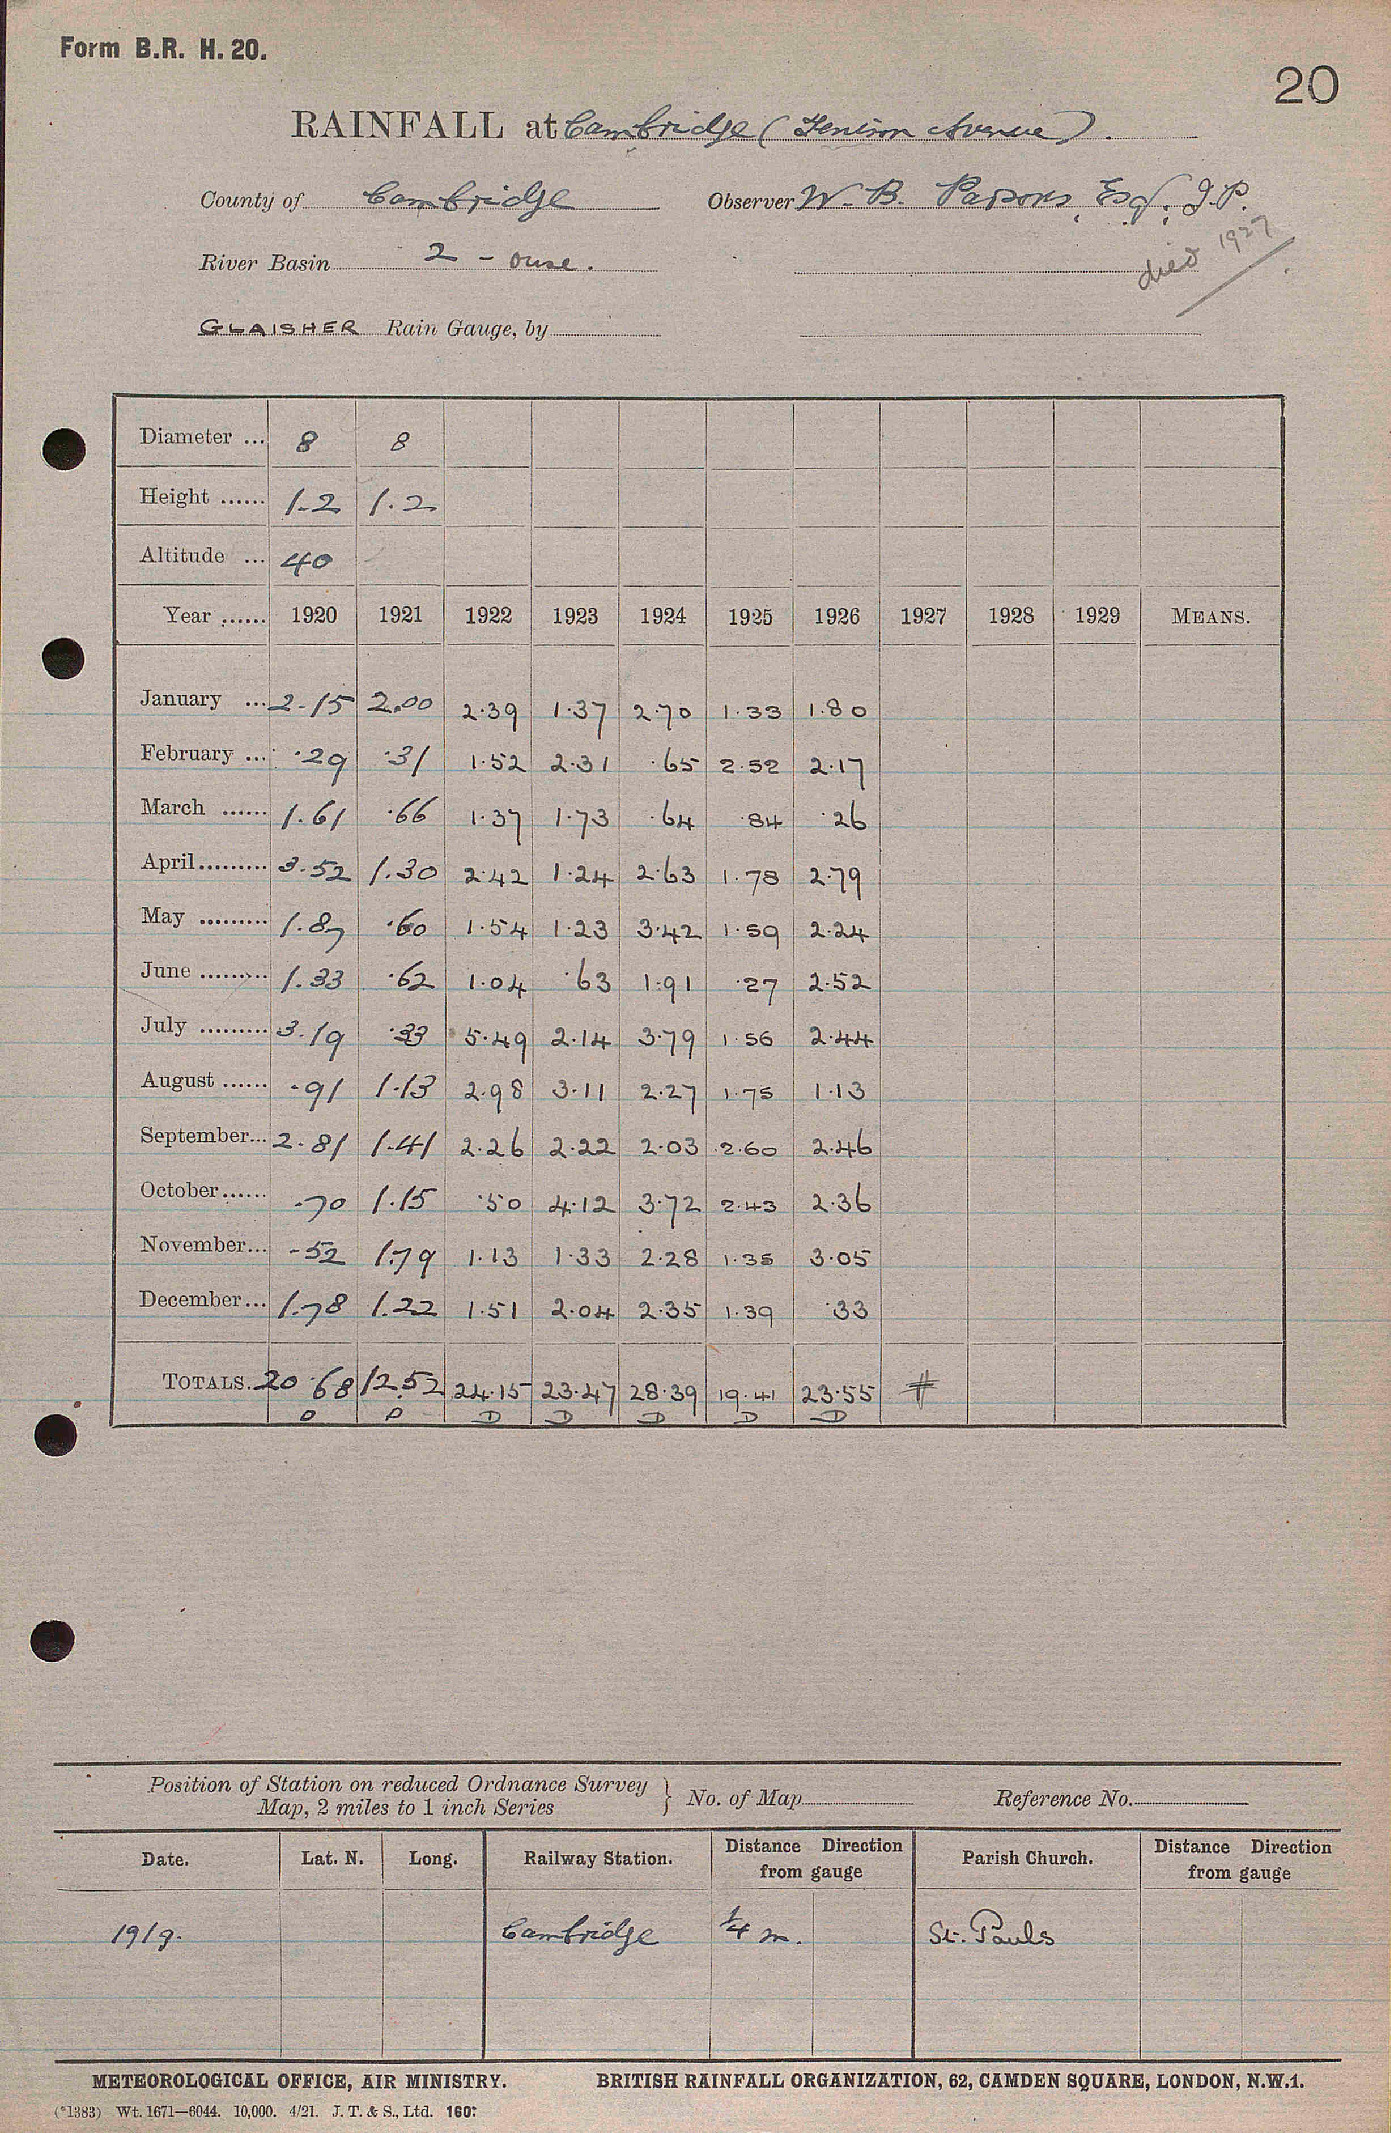 Form B.R. H. 20.
20
RAINFALL at Cambridge (Tenison Avenue).
County of Cambridge Observer W. B. Parsons, Esq. J.P.
River Basin 2 - Ouse.
died 1927
GLAISHER Rain Gauge, by
Diameter ... 8 8
Height ...... 1.2 1.2
Altitude ... 40
Year ...... 1920 1921 1922 1923 1924 1925 1926 1927 1928 1929 MEANS.
January ... 2.15 2.00 2.39 1.37 2.70 1.33 1.80
February ... .29 .31 1.52 2.31 .65 2.52 2.17
March ...... 1.61 .66 1.37 1.73 .64 .84 .26
April ......... 3.52 1.30 2.42 1.24 2.63 1.78 2.79
May ......... 1.87 .60 1.54 1.23 3.42 1.59 2.24
June ......... 1.33 .62 1.04 .63 1.91 .27 2.52
July ......... 3.19 .33 5.49 2.14 3.79 1.56 2.44
August ...... .91 1.13 2.98 3.11 2.27 1.75 1.13
September... 2.81 1.41 2.26 2.22 2.03 2.60 2.46
October...... .70 1.15 .50 4.12 3.72 2.43 2.36
November... .52 1.79 1.13 1.33 2.28 1.35 3.05
December... 1.78 1.22 1.51 2.04 2.35 1.39 .33
TOTALS. 20.68 12.52 24.15 23.47 28.39 19.41 23.55 #
D D D D D D D
Position of Station on reduced Ordnance Survey
Map, 2 miles to 1 inch Series } No. of Map Reference No.
Date. Lat. N. Long. Railway Station. Distance Direction from gauge Parish Church. Distance Direction from gauge
1919. Cambridge 1/4 m. St. Pauls
METEOROLOGICAL OFFICE, AIR MINISTRY. BRITISH RAINFALL ORGANIZATION, 62, CAMDEN SQUARE, LONDON, N.W.1.
(*1383) Wt. 1671—6044. 10,000. 4/21. J. T. & S., Ltd. 160.